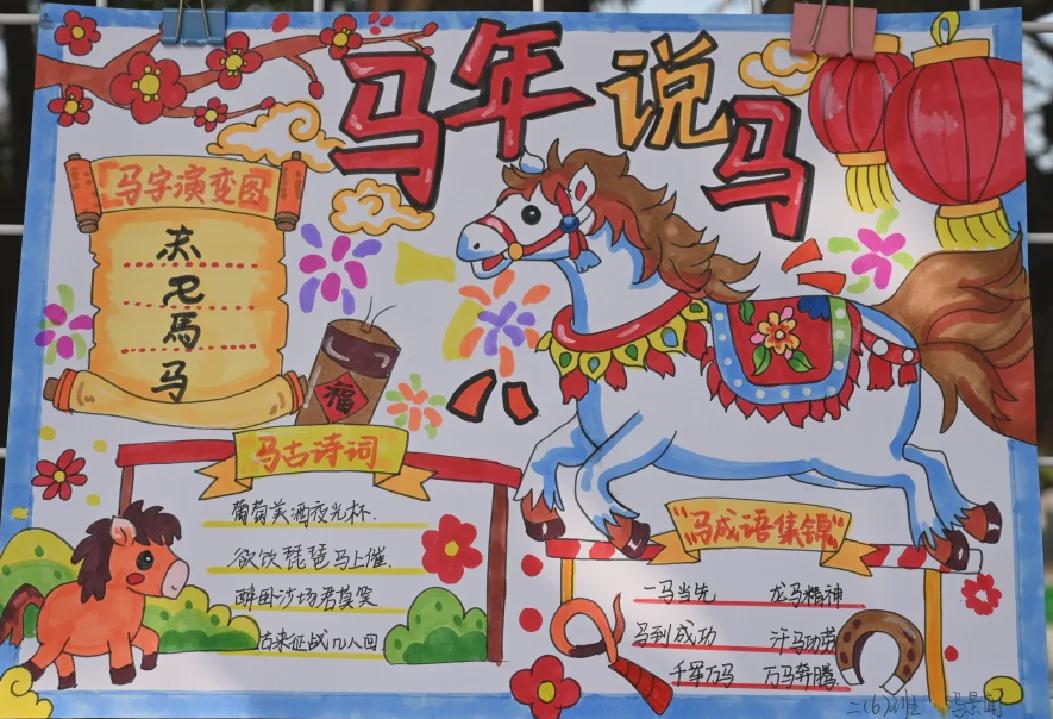 马年说马
马字演变图
馬
马
福
马古诗词
葡萄美酒夜光杯.
欲饮琵琶马上催.
醉卧沙场君莫笑
古来征战几人回
"马成语集锦"
一马当先 龙马精神
马到成功 汗马功劳
千军万马 万马奔腾
二(6)班